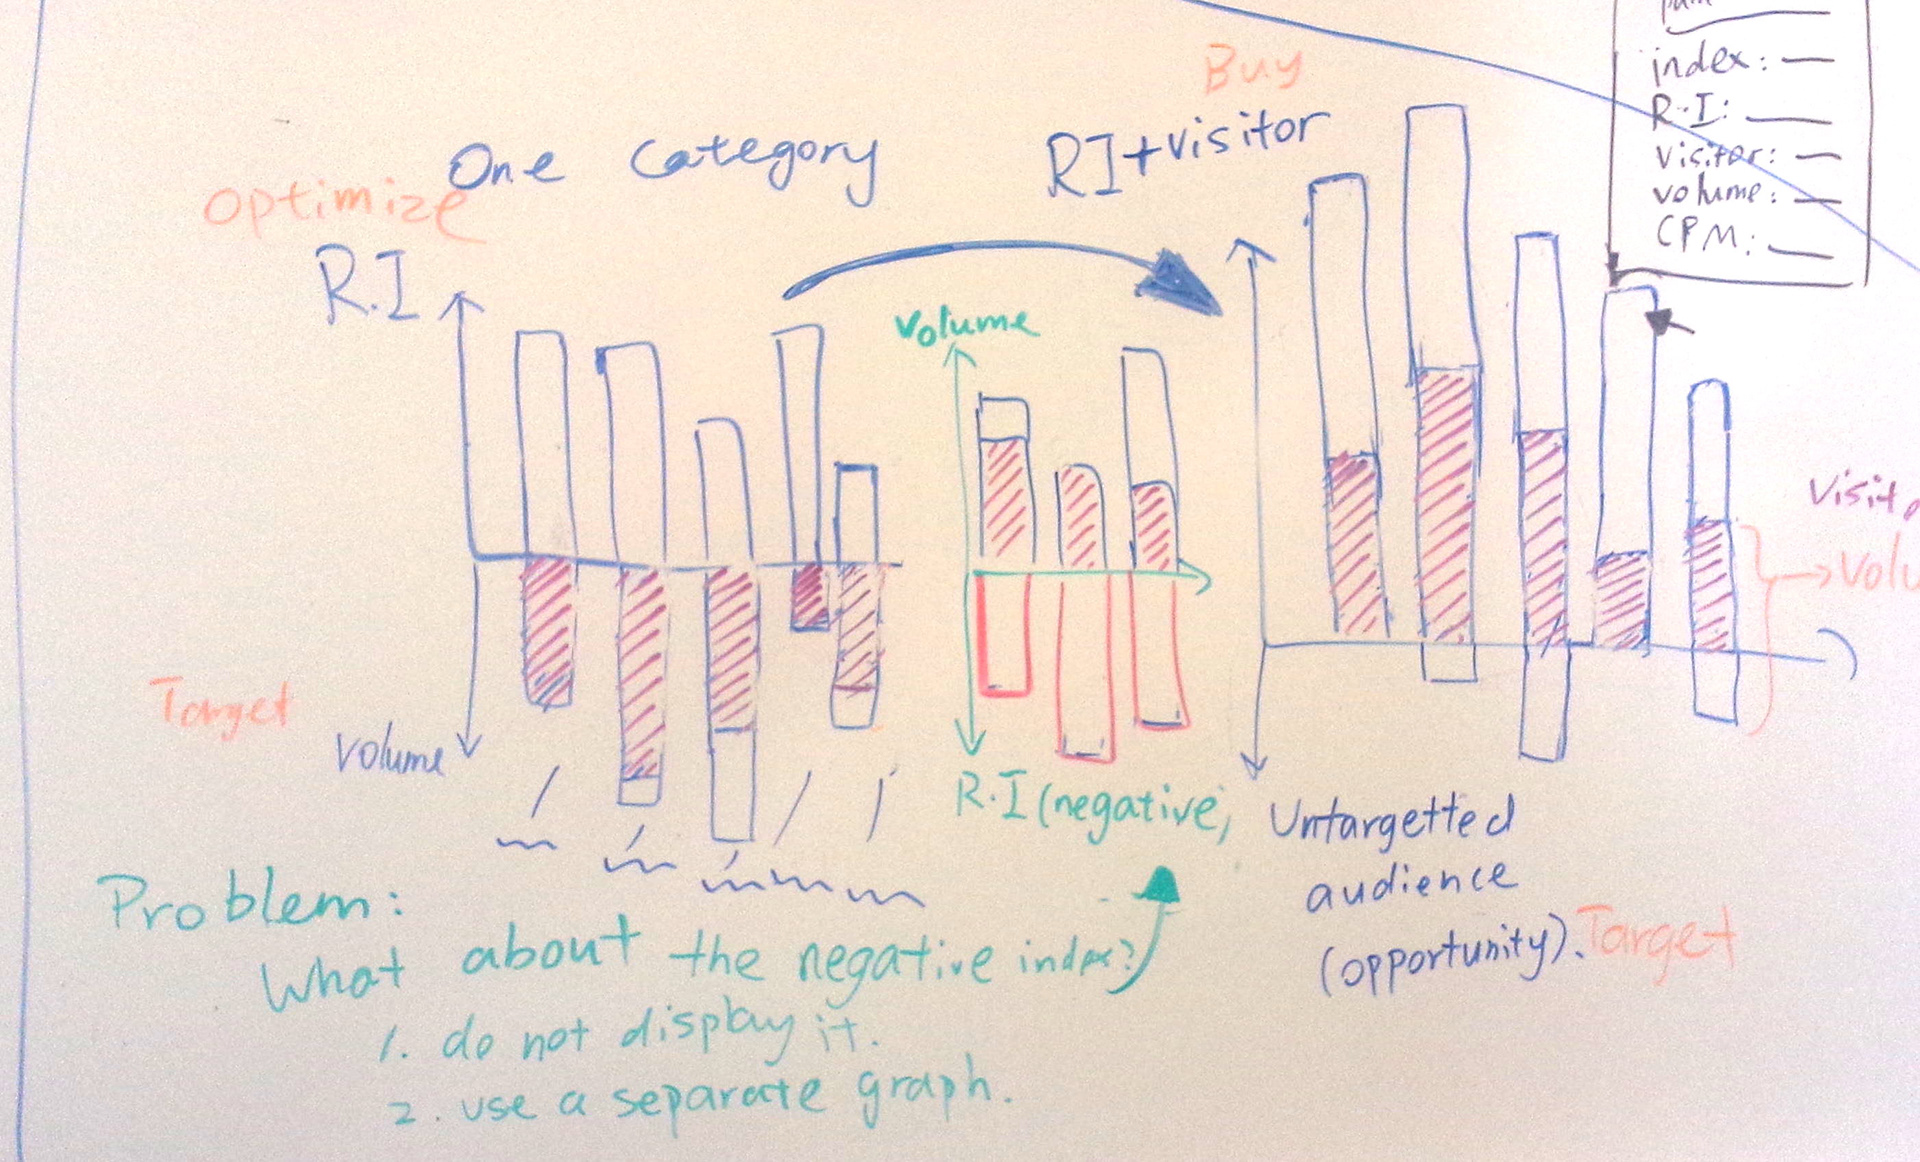 Buy
index:
R.I:
visitor:
volume:
CPM:
One Category
RI+visitor
Optimize
R.I
volume
Target
volume
R.I (negative)
Untargetted
audience
(opportunity). Target
Problem:
What about the negative index?
1. do not display it.
2. use a separate graph.